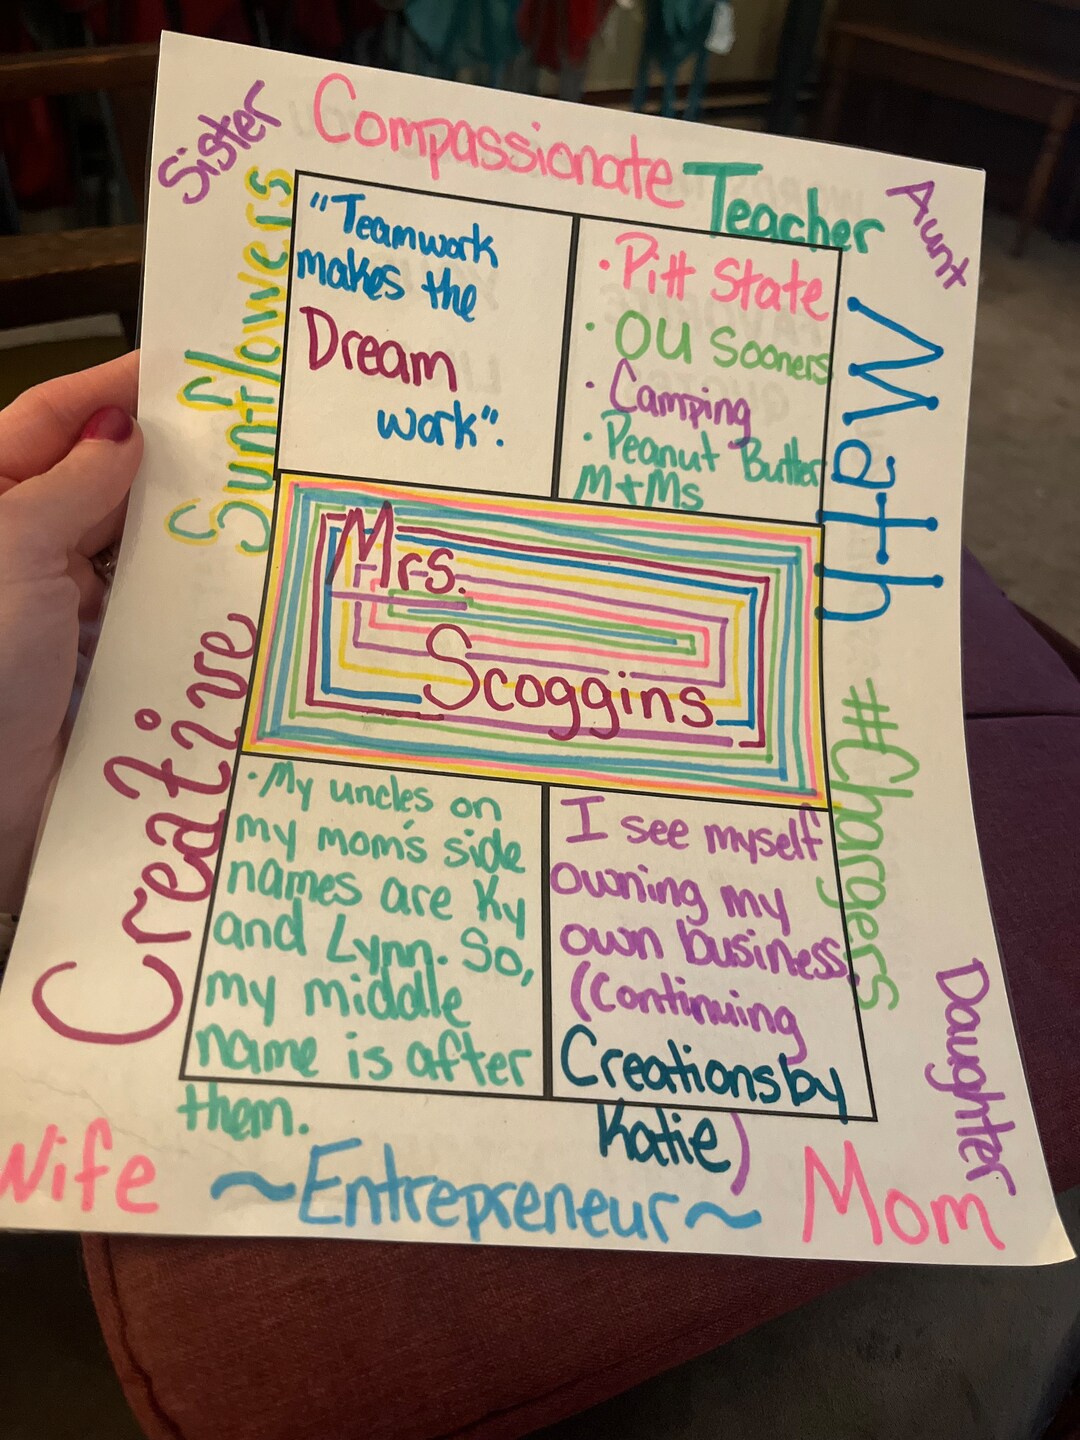 Sister
Compassionate
Teacher
Aunt
Sunflowers
"Teamwork
makes the
Dream
work".
• Pitt State
• OU Sooners
• Camping
• Peanut Butter
M+Ms
Math
Mrs.
Scoggins
Creative
#Chargers
• My uncles on
my mom's side
names are Ky
and Lynn. So,
my middle
name is after
them.
I see myself
owning my
own business.
(Continuing
Creationsby
Katie)
Daughter
Wife
~Entrepreneur~
Mom